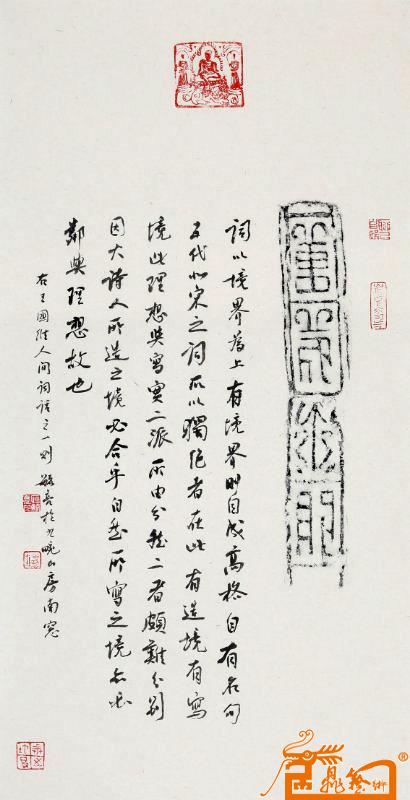 詞以境界為上有境界則自成高格自有名句
五代北宋之詞所以獨絕者在此有造境有寫
境此理想與寫實二派所由分然二者頗難分別
因大詩人所造之境必合乎自然所寫之境亦必
鄰與理想故也
右王國維人間詞話之一則 於九畹山房南窗